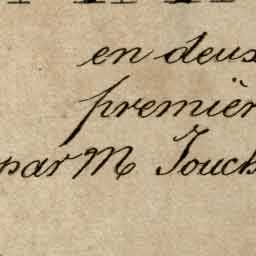 en deux
premièr
par M Touch